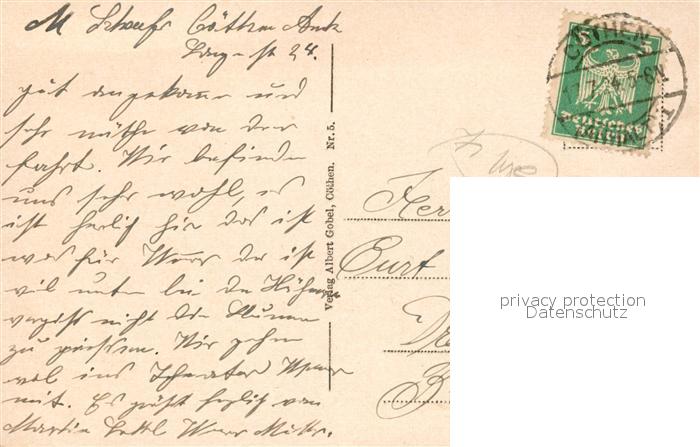 M Schaefr Cöthen Anh
Lange st 24.
gut angekomm und
sehr müthe von der
fahrt. Wir befinden
uns sehr wohl, es
ist herlich hir das ist
was für Werner der ist
vil unten bei die Hühner
vergiss nicht die Blumen
zu giessen. Wir gehen
wol ins Theater Werner
mit. Es grüßt herzlich von
Martin Werner Mutter.
Verlag Albert Gobel, Cöthen. Nr. 5.
CÖTHEN
5 5
Deutsches Reich
Herr
Curt
Dre
privacy protection
Datenschutz